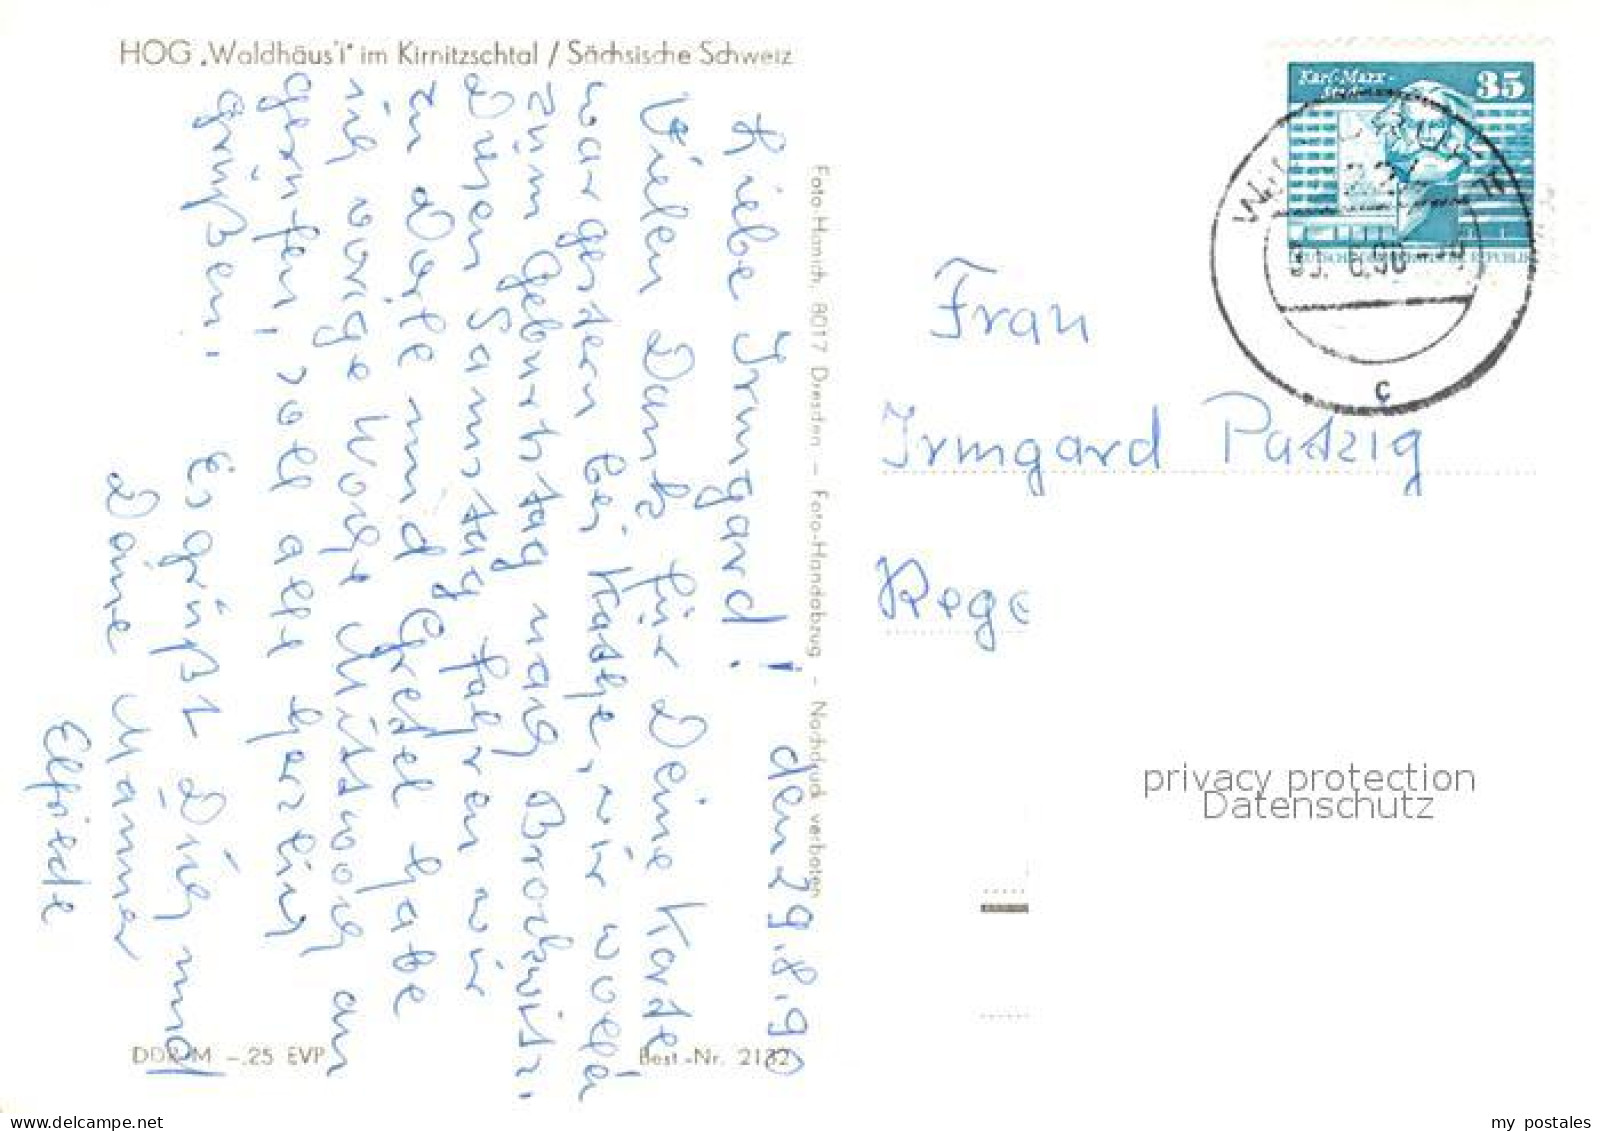 HOG „Waldhäus'l“ im Kirnitzschtal / Sächsische Schweiz
den 29.8.90
Liebe Irmgard!
Vielen Dank für Deine Karte
vorgestern bei Käthe, wir
zum Geburtstag nach Brockwitz.
Diesen Samstag fahren wir
zu Dörte und Gretel habe
ich vorige Woche Mittwoch an
gerufen, soll alle herzlich
grüßen.
Es grüßt Dich und
Deine Männer
Elfriede
DDR M –.25 EVP
Best.-Nr. 2132
Foto-Hanich, 8017 Dresden – Foto-Handabzug – Nachdruck verboten
Karl-Marx-
Stadt
35
DEUTSCHE DEMOKRATISCHE REPUBLIK
c
Frau
Irmgard Patzig
Rege
privacy protection
Datenschutz
my postales